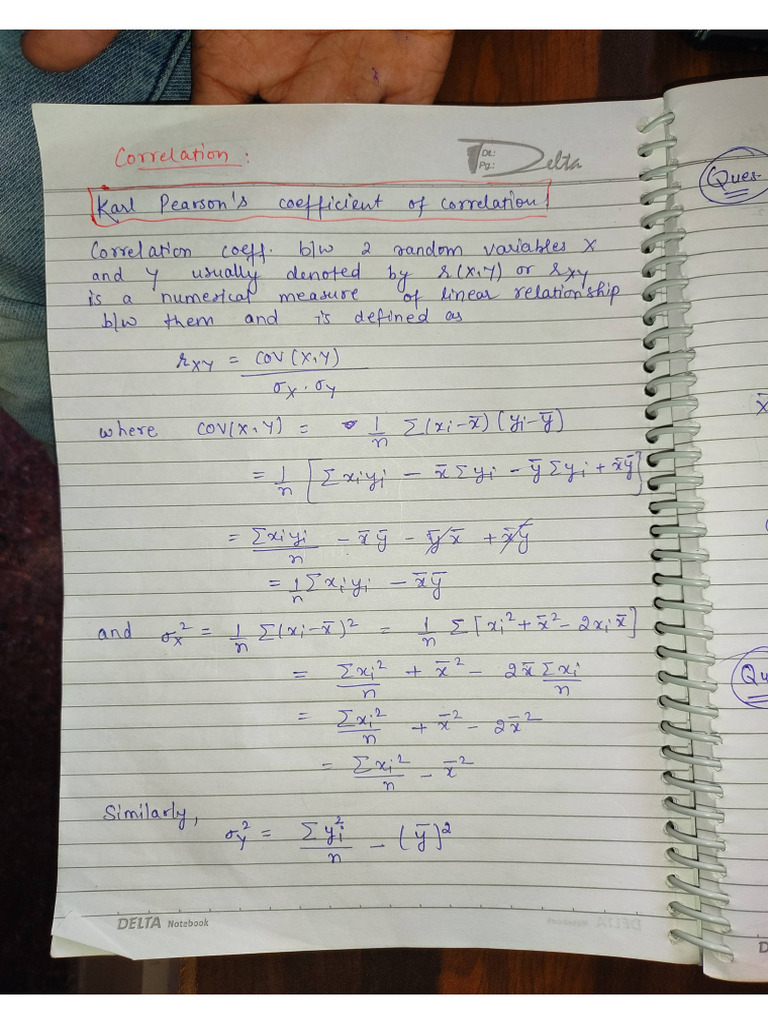 Correlation :
Dt.:
Pg.:
Delta
Karl Pearson's coefficient of correlation!
Ques-
Correlation coeff. b/w 2 random variables X
and Y usually denoted by r(X,Y) or rXY
is a numerical measure of linear relationship
b/w them and is defined as
rXY = COV(X,Y) / σX·σY
where COV(X,Y) = 1/n Σ(xi-x̄)(yi-ȳ)
= 1/n [Σxiyi - x̄Σyi - ȳΣyi + x̄ȳ]
= Σxiyi/n - x̄ȳ - ȳx̄ + x̄ȳ
= 1/n Σxiyi - x̄ȳ
and σx² = 1/n Σ(xi-x̄)² = 1/n Σ[xi²+x̄²-2xix̄]
= Σxi²/n + x̄² - 2x̄Σxi/n
= Σxi²/n + x̄² - 2x̄²
= Σxi²/n - x̄²
Similarly,
σY² = Σyi²/n - (ȳ)²
DELTA Notebook